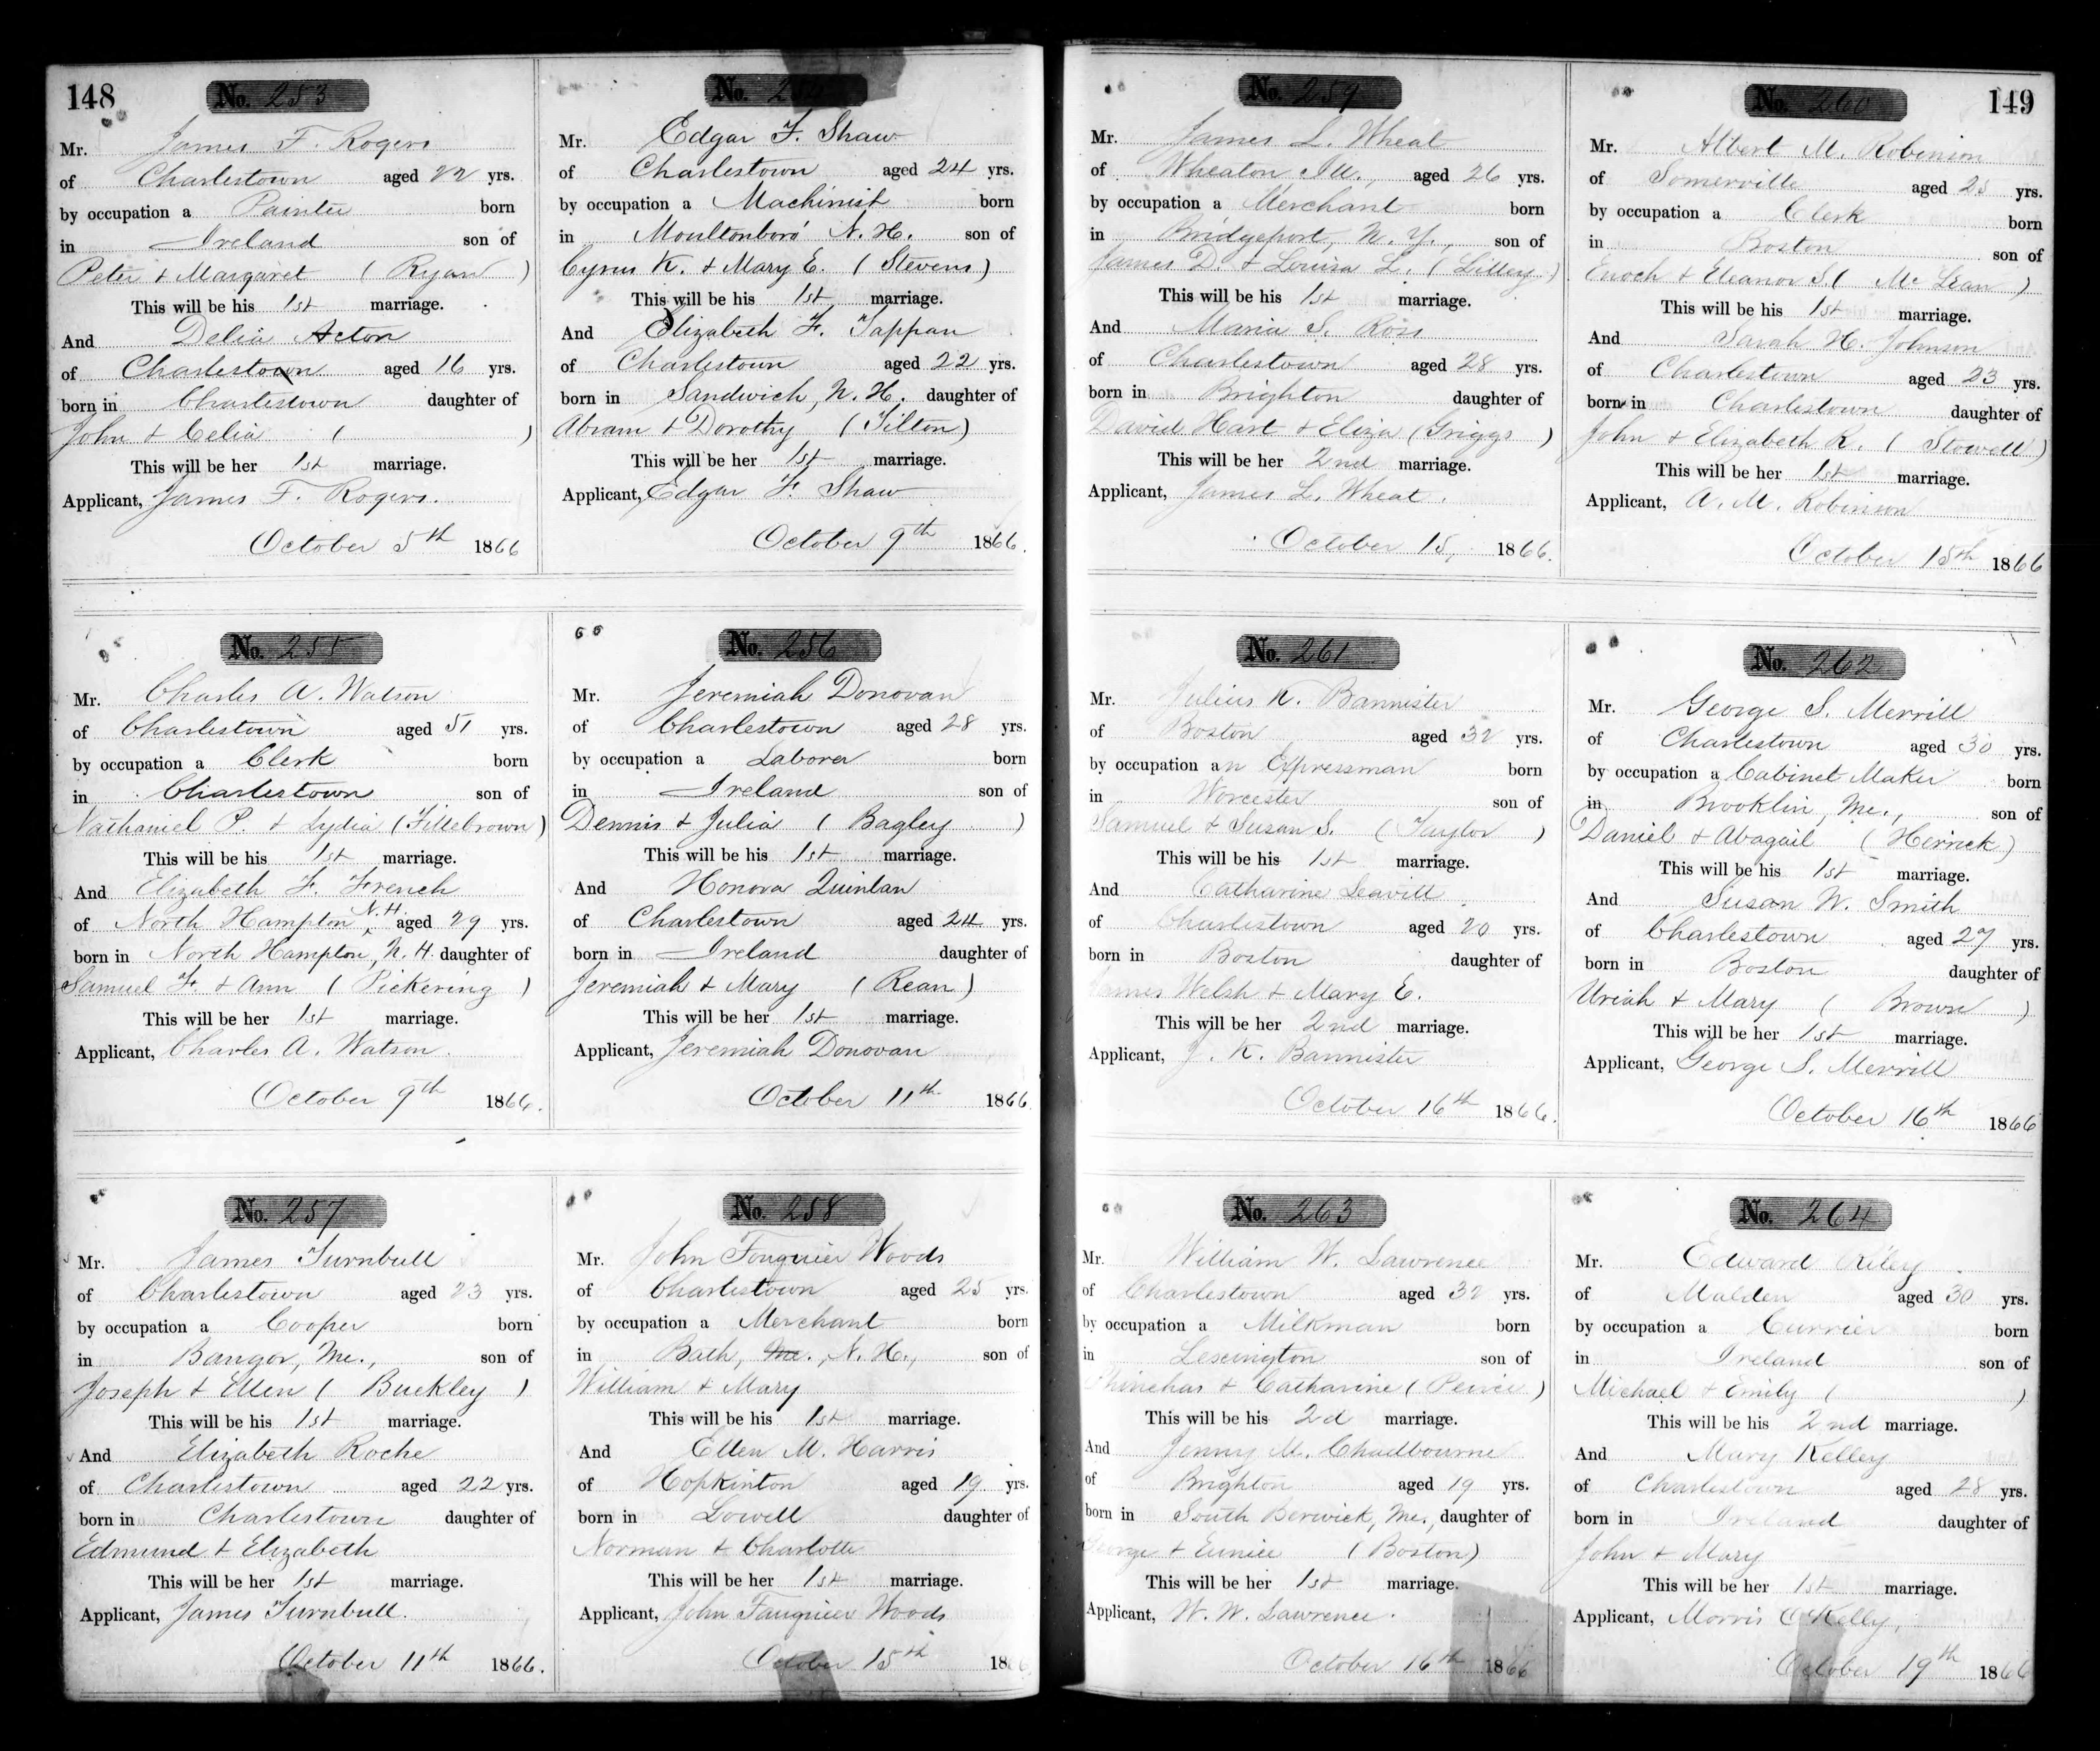 148
No. 253
Mr. James F. Rogers
of Charlestown aged 22 yrs.
by occupation a Painter born
in Ireland son of
Peter & Margaret ( Ryan )
This will be his 1st marriage.
And Delia Acton
of Charlestown aged 16 yrs.
born in Charlestown daughter of
John & Celia ( )
This will be her 1st marriage.
Applicant, James F. Rogers.
October 5th 1866
No.
Mr. Edgar F. Shaw
of Charlestown aged 24 yrs.
by occupation a Machinist born
in Moultonboro' N. H. son of
Cyrus K. & Mary E. ( Stevens )
This will be his 1st marriage.
And Elizabeth F. Tappan
of Charlestown aged 22 yrs.
born in Sandwich, N. H. daughter of
Abram & Dorothy ( Tilton )
This will be her 1st marriage.
Applicant, Edgar F. Shaw
October 9th 1866.
No. 255
Mr. Charles A. Watson
of Charlestown aged 51 yrs.
by occupation a Clerk born
in Charlestown son of
Nathaniel P. & Lydia ( Fillebrown )
This will be his 1st marriage.
And Elizabeth F. French
of North Hampton N. H. aged 29 yrs.
born in North Hampton, N. H. daughter of
Samuel F. & Ann ( Pickering )
This will be her 1st marriage.
Applicant, Charles A. Watson.
October 9th 1866.
No. 256
Mr. Jeremiah Donovan
of Charlestown aged 28 yrs.
by occupation a Laborer born
in Ireland son of
Dennis & Julia ( Bagley )
This will be his 1st marriage.
And Honora Quinlan
of Charlestown aged 24 yrs.
born in Ireland daughter of
Jeremiah & Mary ( Rean )
This will be her 1st marriage.
Applicant, Jeremiah Donovan
October 11th 1866
No. 257
Mr. James Turnbull
of Charlestown aged 23 yrs.
by occupation a Cooper born
in Bangor, Me., son of
Joseph & Ellen ( Buckley )
This will be his 1st marriage.
And Elizabeth Roche
of Charlestown aged 22 yrs.
born in Charlestown daughter of
Edmund & Elizabeth
This will be her 1st marriage.
Applicant, James Turnbull.
October 11th 1866.
No. 258
Mr. John Fouquier Woods
of Charlestown aged 25 yrs.
by occupation a Merchant born
in Bath, Me., N. H., son of
William & Mary
This will be his 1st marriage.
And Ellen M. Harris
of Hopkinton aged 19 yrs.
born in Lowell daughter of
Norman & Charlotte
This will be her 1st marriage.
Applicant, John Fauquier Woods
October 15th 186
149
No. 259
Mr. James L. Wheat
of Wheaton, Ill., aged 26 yrs.
by occupation a Merchant born
in Bridgeport, N. Y., son of
James D. & Louisa L. ( Lilley )
This will be his 1st marriage.
And Maria S. Ross
of Charlestown aged 28 yrs.
born in Brighton daughter of
David Hart & Eliza ( Griggs )
This will be her 2nd marriage.
Applicant, James L. Wheat.
October 15, 1866.
No. 260
Mr. Albert M. Robinson
of Somerville aged 25 yrs.
by occupation a Clerk born
in Boston son of
Enoch & Eleanor S. ( Mc Lean )
This will be his 1st marriage.
And Sarah H. Johnson
of Charlestown aged 23 yrs.
born in Charlestown daughter of
John & Elizabeth R. ( Stowell )
This will be her 1st marriage.
Applicant, A. M. Robinson
October 15th 1866
No. 261
Mr. Julius K. Bannister
of Boston aged 32 yrs.
by occupation an Expressman born
in Worcester son of
Samuel & Susan S. ( Taylor )
This will be his 1st marriage.
And Catharine Leavitt
of Charlestown aged 20 yrs.
born in Boston daughter of
James Welsh & Mary E.
This will be her 2nd marriage.
Applicant, J. K. Bannister
October 16th 1866.
No. 262
Mr. George S. Merrill
of Charlestown aged 30 yrs.
by occupation a Cabinet Maker born
in Brooklin, Me., son of
Daniel & Abagail ( Herrick )
This will be his 1st marriage.
And Susan W. Smith
of Charlestown aged 27 yrs.
born in Boston daughter of
Uriah & Mary ( Brown )
This will be her 1st marriage.
Applicant, George S. Merrill
October 16th 1866
No. 263
Mr. William W. Lawrence
of Charlestown aged 32 yrs.
by occupation a Milkman born
in Lexington son of
Phinehas & Catharine ( Peirce )
This will be his 2d marriage.
And Jenny M. Chadbourne
of Brighton aged 19 yrs.
born in South Berwick, Me., daughter of
George & Eunice ( Boston )
This will be her 1st marriage.
Applicant, W. W. Lawrence.
October 16th 1866
No. 264
Mr. Edward Riley
of Malden aged 30 yrs.
by occupation a Currier born
in Ireland son of
Michael & Emily ( )
This will be his 2nd marriage.
And Mary Kelley
of Charlestown aged 28 yrs.
born in Ireland daughter of
John & Mary
This will be her 1st marriage.
Applicant, Morris O'Kelly,
October 19th 1866